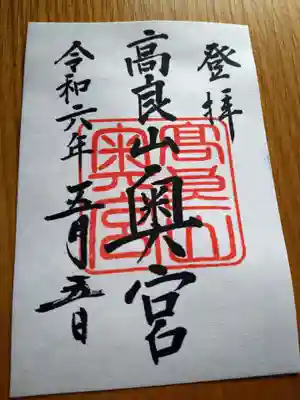 登拝
高良山奥宮
令和六年五月五日
高良山
奥宮